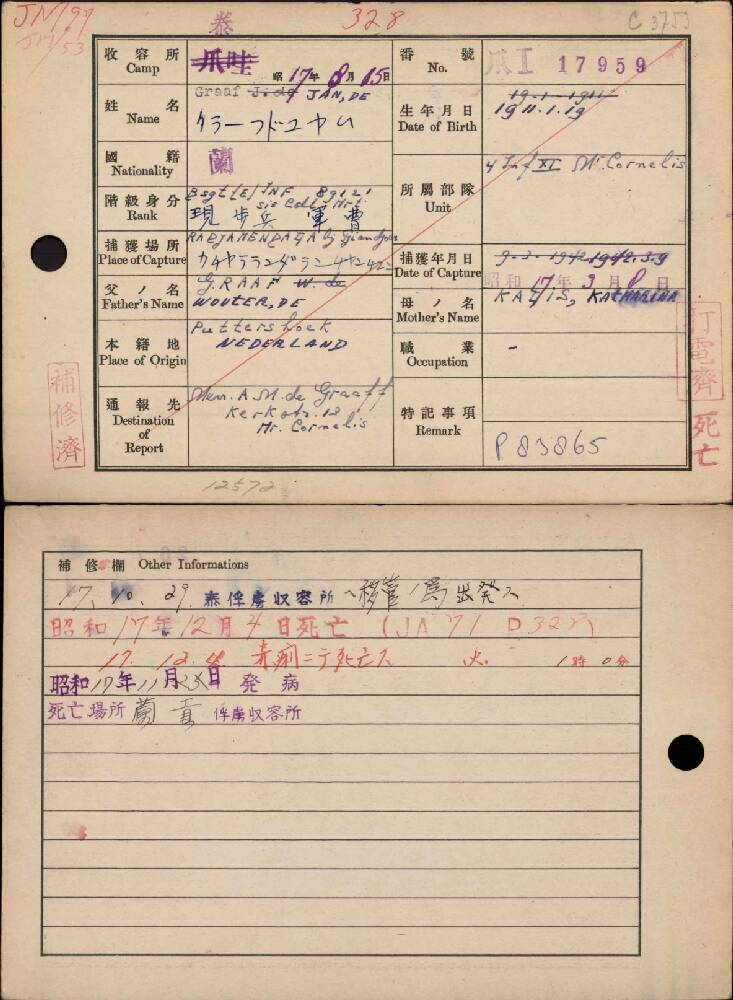 JN/97
328
C 3753
JN/53
泰
收容所
Camp
爪哇
昭17年8月15日
番號
No.
爪I 17959
姓名
Name
Graaf J. de JAN, DE
生年月日
Date of Birth
19-1-1911
1911.1.19
國籍
Nationality
蘭
階級身分
Rank
Bsgt [E] INF 89121
現歩兵軍曹
所屬部隊
Unit
4 Inf XI Mr. Cornelis
捕獲場所
Place of Capture
捕獲年月日
Date of Capture
9-3-1942 1942.3.9
昭和17年3月8日
父ノ名
Father's Name
GRAAF W. de
WOUTER, DE
母ノ名
Mother's Name
KATHARINA
本籍地
Place of Origin
Puttershoek
NEDERLAND
職業
Occupation
-
通報先
Destination
of
Report
Mew. A.M. de Graaff
Kerkstr. 12
Mr. Cornelis
特記事項
Remark
P 83865
補修濟
打電濟
死亡
12572
補修欄 Other Informations
17.10.29. 泰俘虜収容所ヘ移管ノ為出発ス
昭和17年12月4日死亡 (JA 71 D 328)
17. 12. 4. 赤痢ニテ死亡ス 火. 1時0分
昭和17年11月25日 発病
死亡場所 俘虜収容所